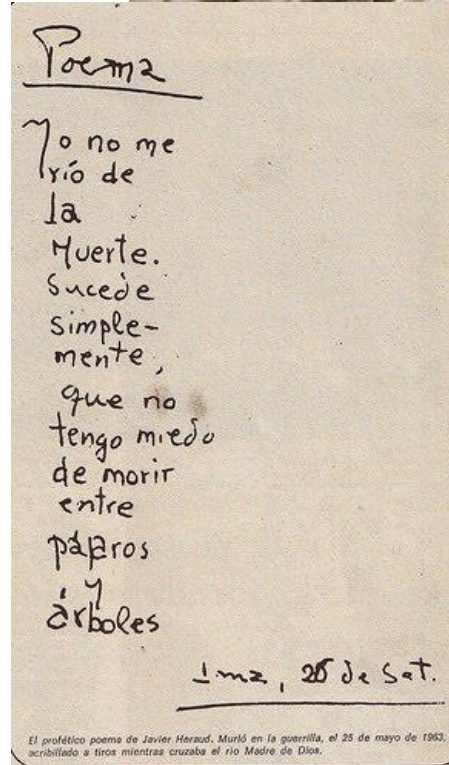 Poema
Yo no me
río de
la
Muerte.
Sucede
simple-
mente,
que no
tengo miedo
de morir
entre
pájaros
y
árboles
25 de Set.
El profético poema de Javier Heraud. Murió en la guerrilla, el 25 de mayo de 1963,
acribillado a tiros mientras cruzaba el río Madre de Dios.